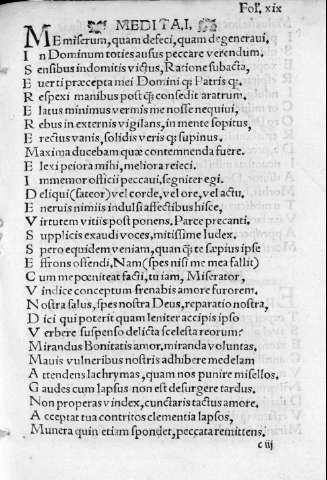 Fol. xix
MEDITAI.
ME miserum, quam defeci, quam degeneraui.
In Dominum toties ausus peccare verendum.
Sensibus indomitis victus, Ratione subacta,
Euerti præcepta mei Domini q; Patris q;.
Respexi manibus post q; consedit aratrum.
Elatus minimus vermis me nosse nequiui.
Rebus in externis vigilans, in mente sopitus,
Erectus vanis, solidis veris q; supinus.
Maxima ducebam quæ contemnenda fuere.
Elexi peiora mihi, meliora reieci.
Immemor officii peccaui, segniter egi.
Deliqui (fateor) vel corde, vel ore, vel actu,
Eneruis nimiis indulsi affectibus hisce,
Virtutem vitiis postponens. Parce precanti.
Supplicis exaudi voces, mitissime Iudex.
Spero equidem veniam, quan q; te sæpius ipse
Effrons offendi, Nam (spes nisi me mea fallit)
Cum me pœniteat facti, tu iam, Miserator,
Vindice conceptum frenabis amore furorem.
Nostra salus, spes nostra Deus, reparatio nostra,
Dici qui poterit quam leniter accipis ipso
Verbere suspenso delicta scelesta reorum?
Mirandus Bonitatis amor, miranda voluntas.
Mauis vulneribus nostris adhibere medelam
Attendens lachrymas, quam nos punire misellos.
Gaudes cum lapsus non est desurgere tardus.
Non properas vindex, cunctaris tactus amore.
Acceptat tua contritos clementia lapsos,
Munera quin etiam spondet, peccata remittens.
c iij